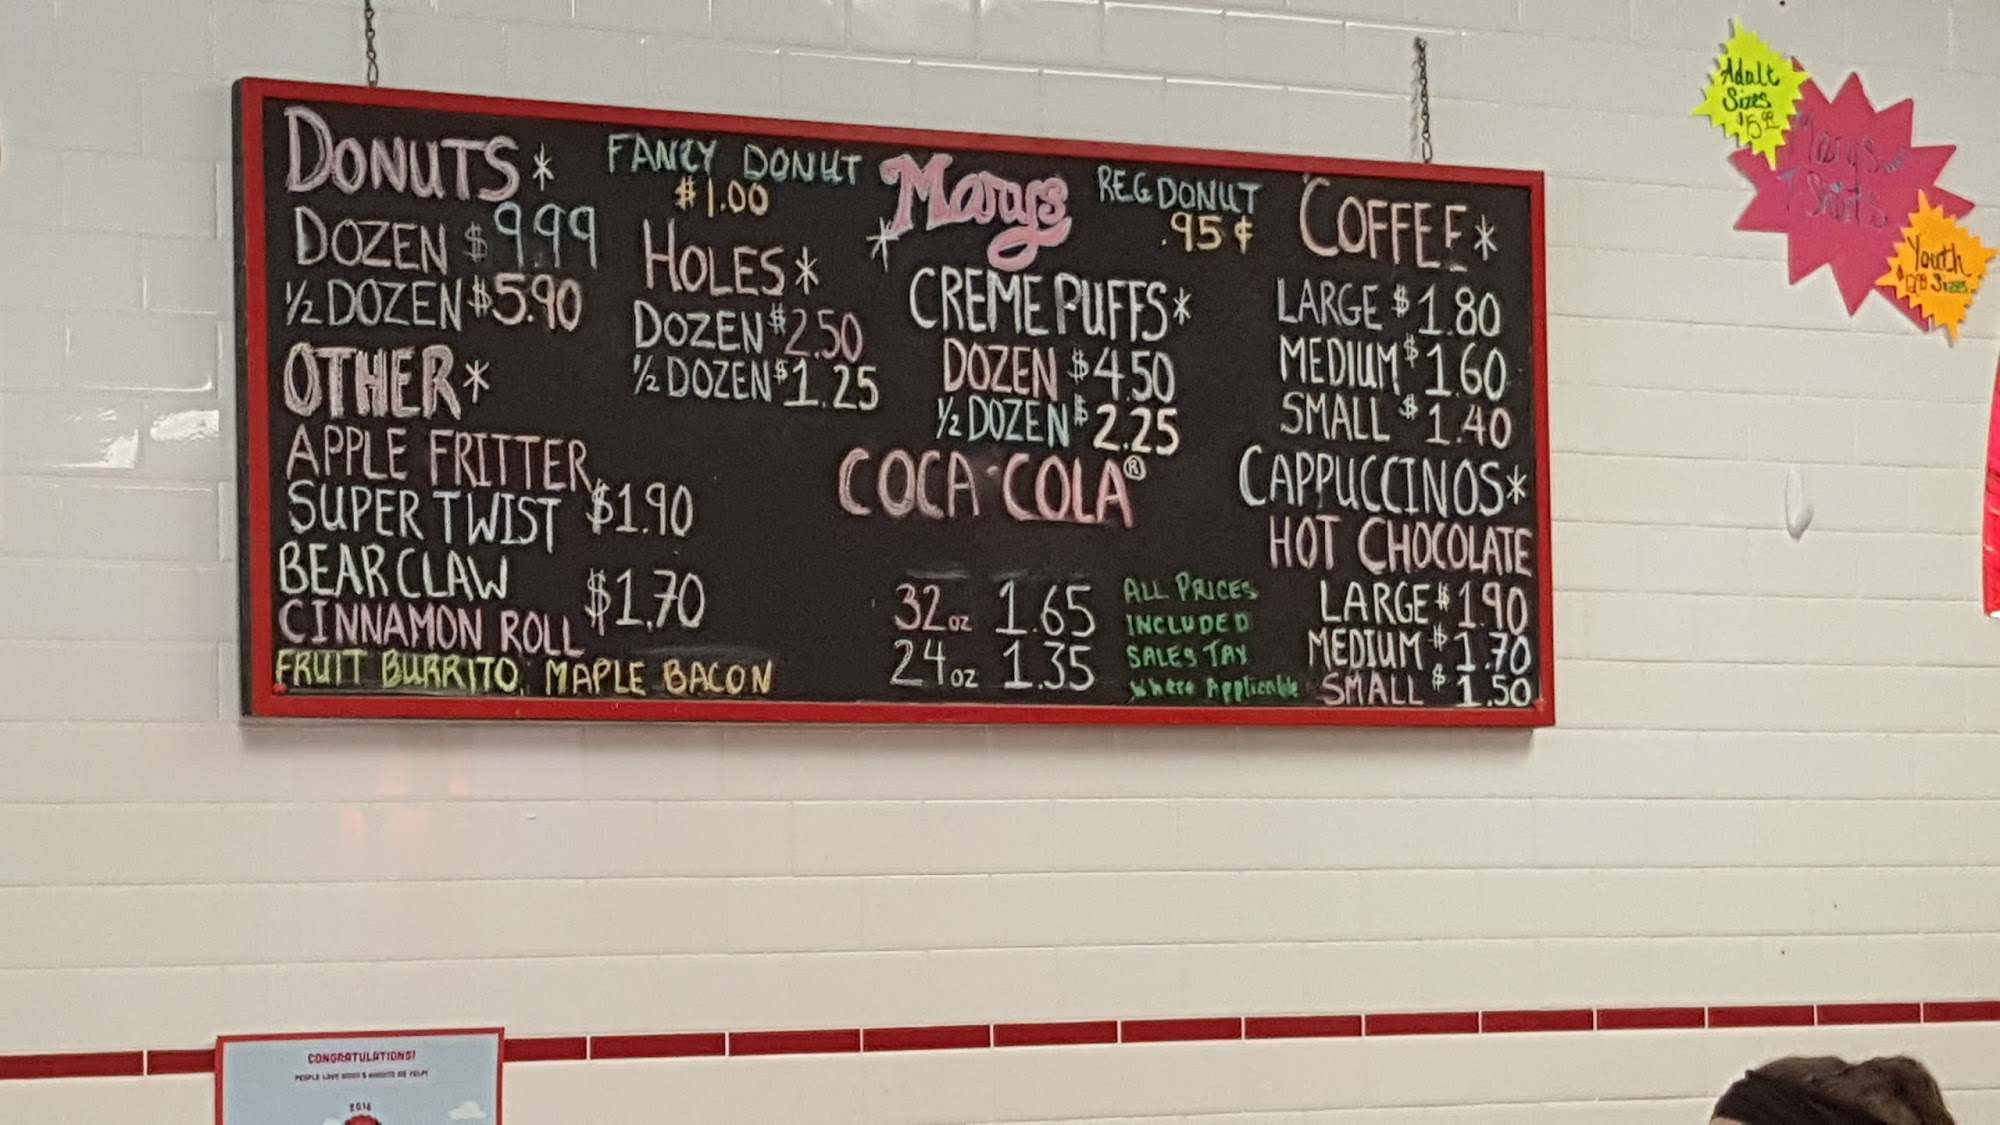 DONUTS*
DOZEN $9.99
1/2 DOZEN $5.90
OTHER*
APPLE FRITTER
SUPER TWIST $1.90
BEAR CLAW
CINNAMON ROLL $1.70
FRUIT BURRITO, MAPLE BACON
FANCY DONUT
$1.00
HOLES*
DOZEN $2.50
1/2 DOZEN $1.25
*Marys
CREME PUFFS*
DOZEN $4.50
1/2 DOZEN $2.25
COCA-COLA®
32oz 1.65
24oz 1.35
REG DONUT
.95¢
ALL PRICES
INCLUDED
SALES TAX
Where Applicable
COFFEE*
LARGE $1.80
MEDIUM $1.60
SMALL $1.40
CAPPUCCINOS*
HOT CHOCOLATE
LARGE $1.90
MEDIUM $1.70
SMALL $1.50
Adult
Sizes
Marys
T-Shirts
Youth
Sizes
CONGRATULATIONS!
PEOPLE LOVE
ON YELP!
2016